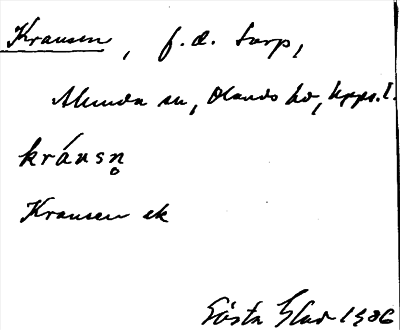 Krausen, f.d. torp,
Alunda sn, Olands hd, Upps. l.
kráusn̥
Krausen ek
Gösta 1906